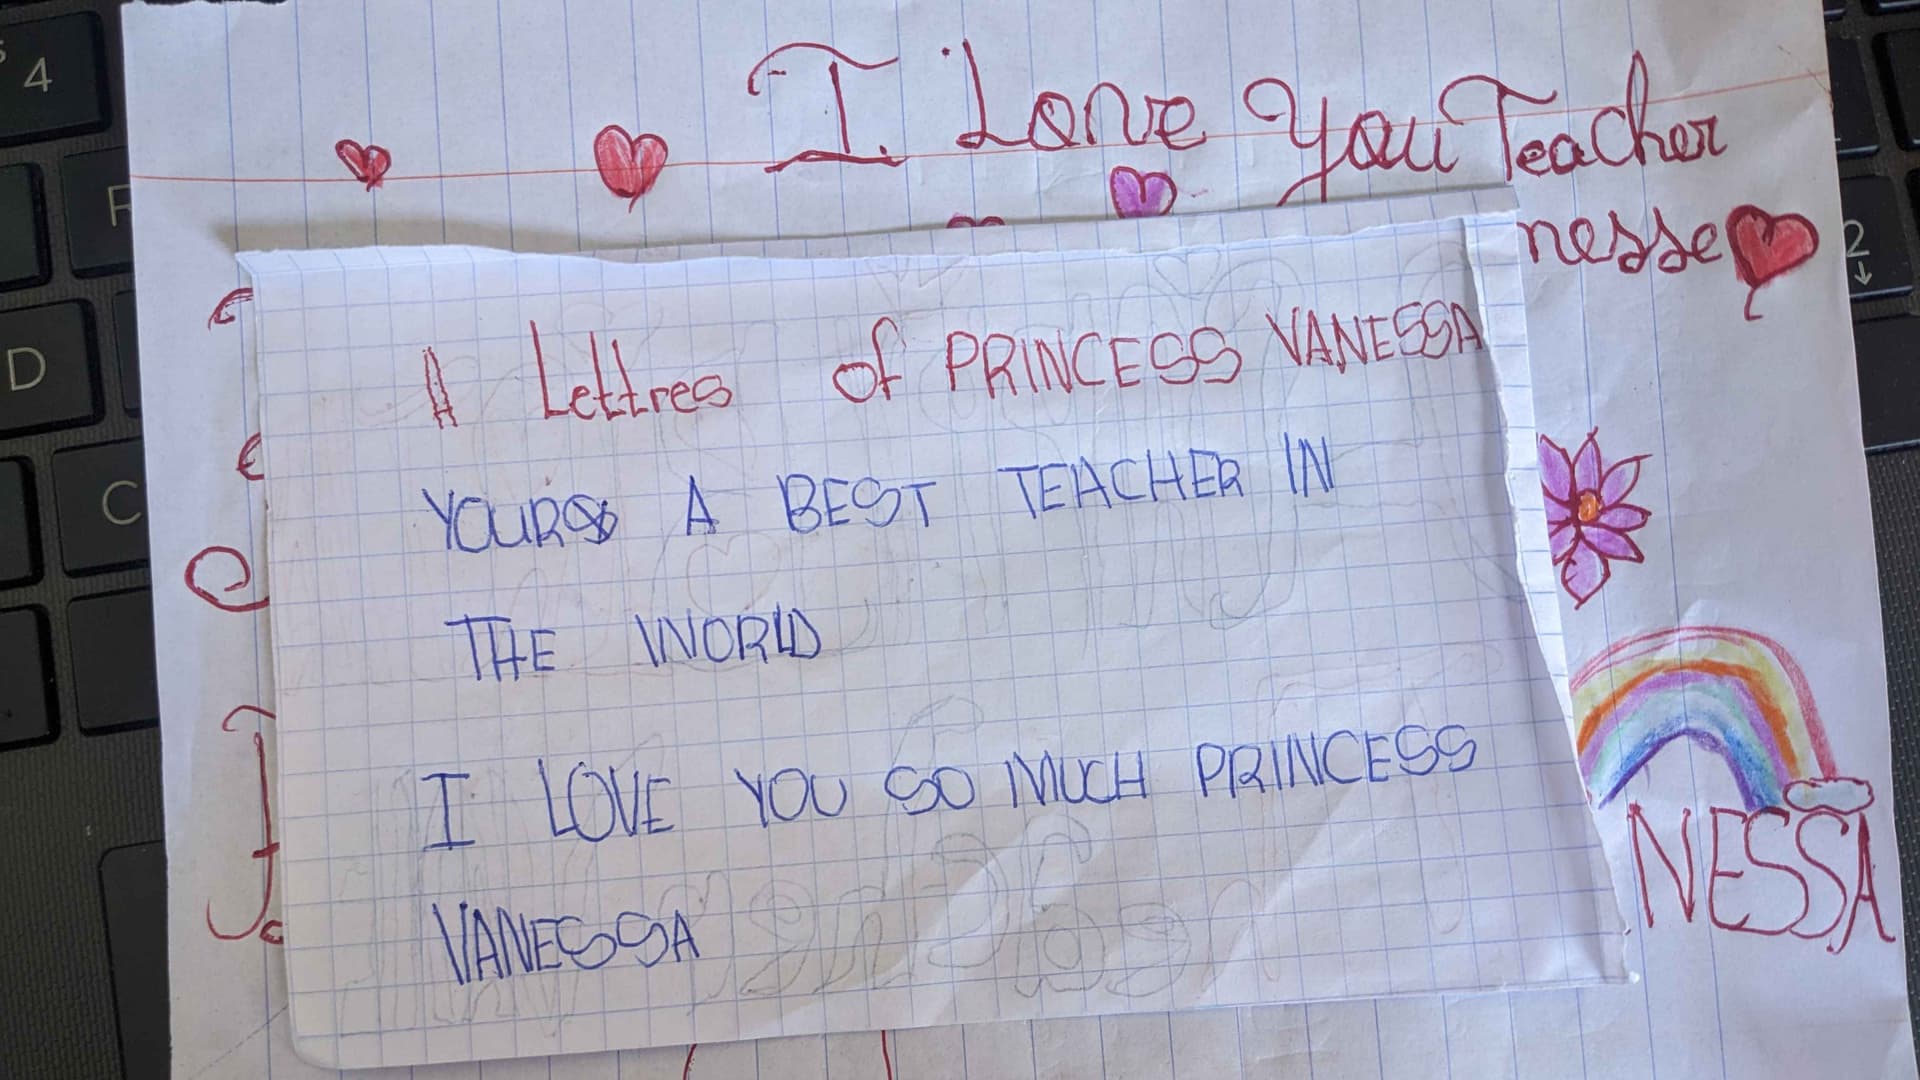 I Love You Teacher
nesse
A Lettres of PRINCESS VANESSA
YOURS A BEST TEACHER IN
THE WORLD
I LOVE YOU SO MUCH PRINCESS
VANESSA
NESSA
4
D
C
2